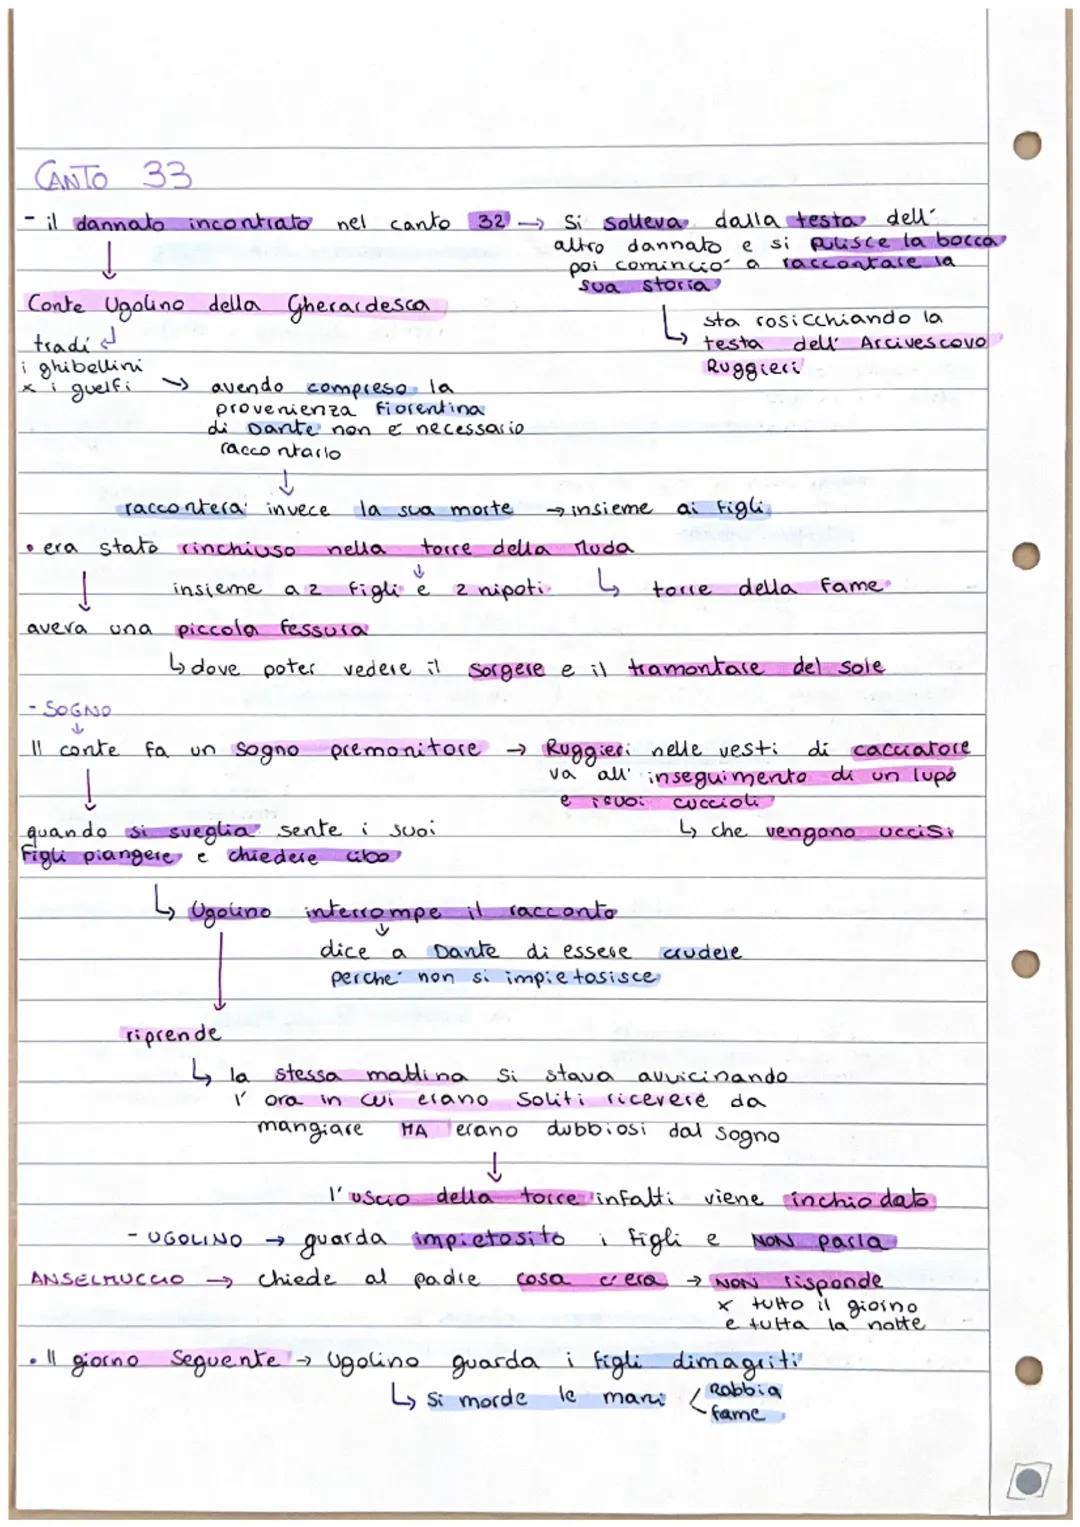 CANTO 33
- il dannato incontrato nel canto 32 → Si solleva dalla testa dell'
altro dannato e si pulisce la bocca
poi cominciò a raccontare la
sua storia
Conte Ugolino della Gherardesca
sta rosicchiando la
testa dell' Arcivescovo
Ruggieri
tradì
i ghibellini
x i guelfi → avendo compreso la
provenienza fiorentina
di Dante non è necessario
raccontarlo
↓
racconterà invece la sua morte → insieme ai figli
• era stato rinchiuso nella torre della Muda
insieme a 2 figli e 2 nipoti ↳ torre della fame
aveva una piccola fessura
↳ dove poter vedere il sorgere e il tramontare del sole
- SOGNO
Il conte fa un sogno premonitore → Ruggieri nelle vesti di cacciatore
va all' inseguimento di un lupo
e i suoi cuccioli
↳ che vengono uccisi
quando si sveglia sente i suoi
figli piangere e chiedere cibo
↳ Ugolino interrompe il racconto
dice a Dante di essere crudele
perché non si impietosisce
riprende
↳ la stessa mattina si stava avvicinando
l' ora in cui erano soliti ricevere da
mangiare MA erano dubbiosi dal sogno
↓
l' uscio della torre infatti viene inchiodato
- UGOLINO → guarda impietosito i figli e NON parla
ANSELMUCCIO → chiede al padre cosa c'era → NON risponde
x tutto il giorno
e tutta la notte
• Il giorno seguente → Ugolino guarda i figli dimagriti
↳ si morde le mani < Rabbia
fame